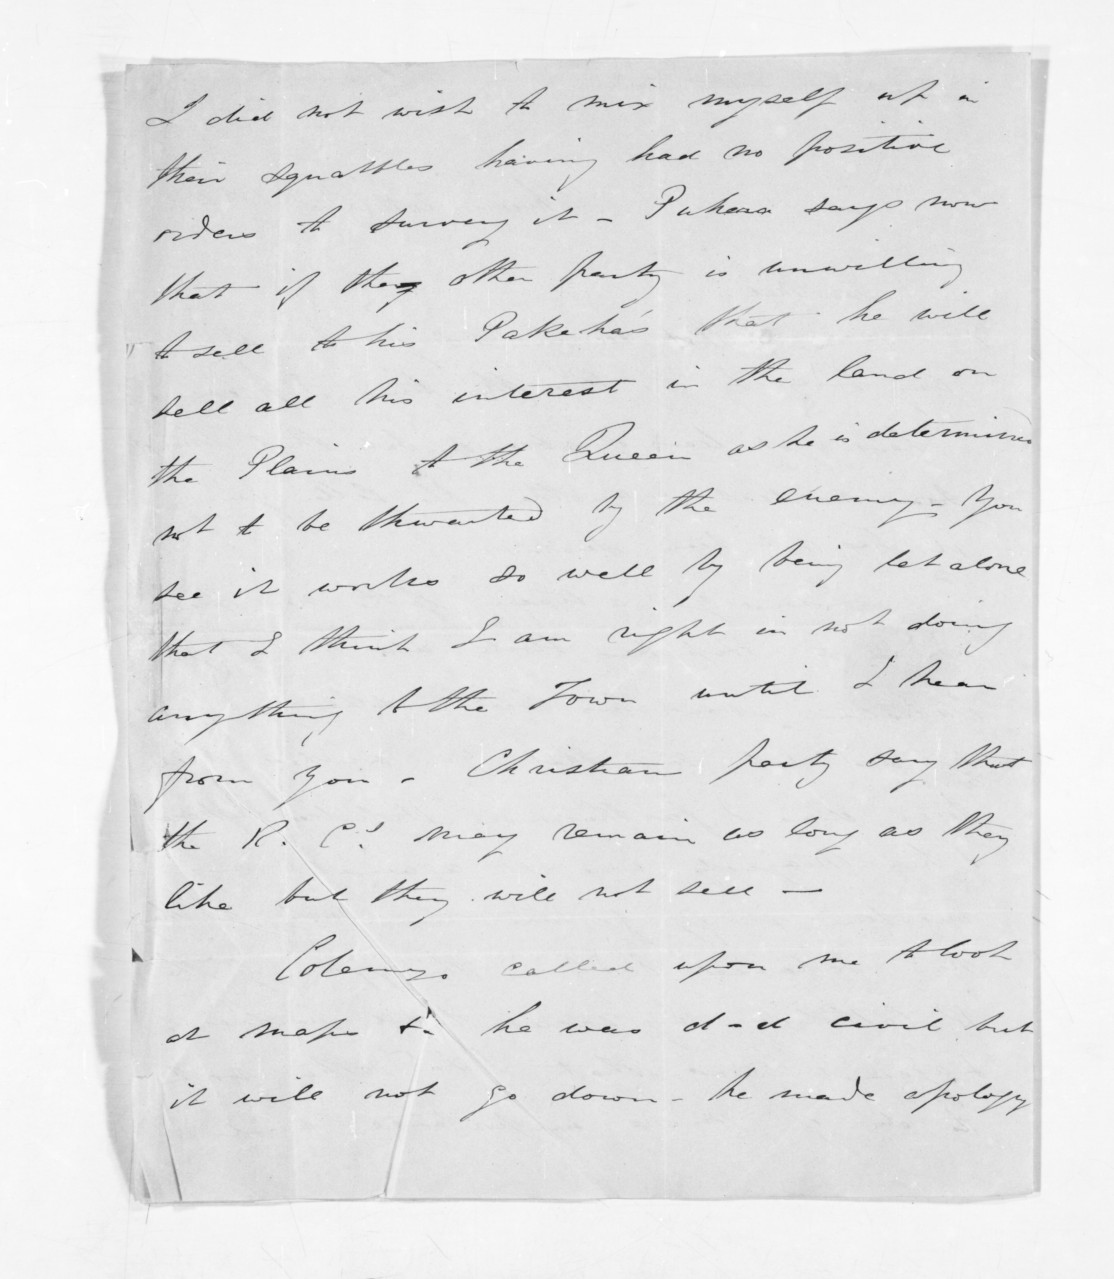 I did not wish to mix myself up in
their squabbles having had no positive
orders to survey it - Puhara says now
that if they other party is unwilling
to sell to his Pakeha's that he will
sell all his interest in the land on
the Plains to the Queen as he is determined
not to be thwarted by the enemy - You
see it works so well by being let alone
that I think I am right in not doing
anything to the Town until I hear
from you - Christian party say that
the R. C.s may remain as long as they
like but they will not sell -
Colenso called upon me to look
at maps &c he was d-d civil but
it will not go down - he made apology